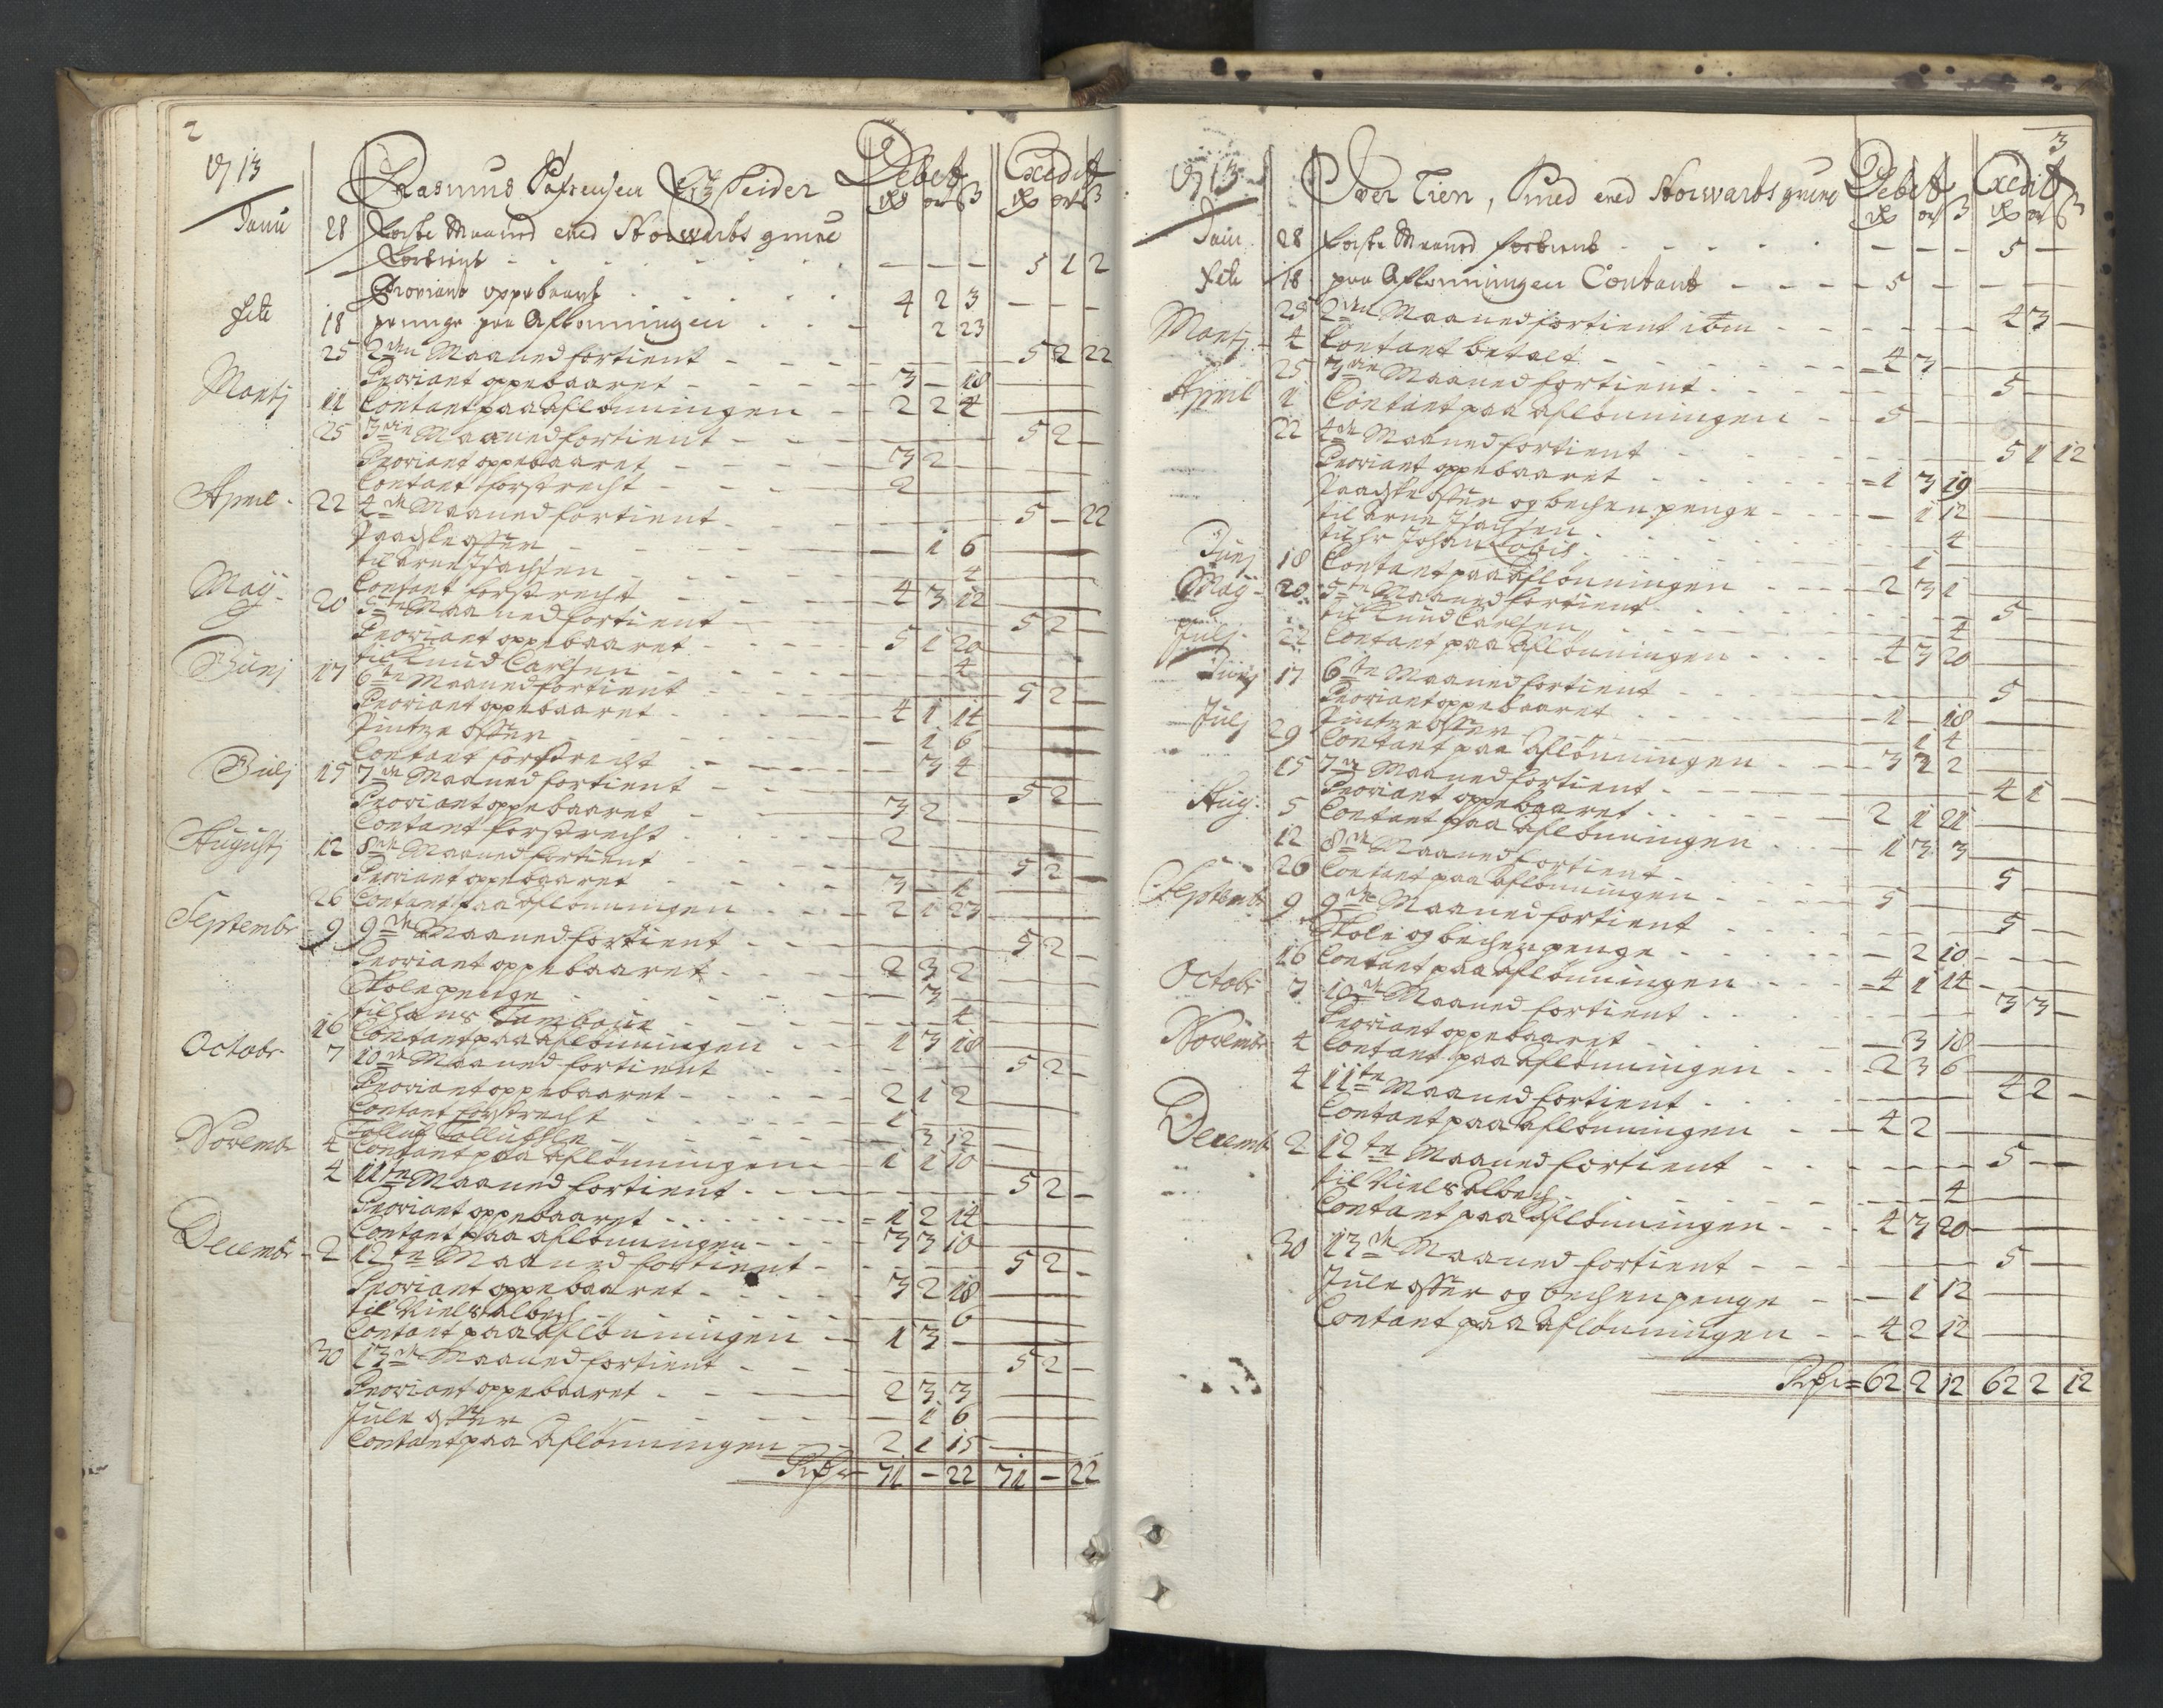 2
1713
Rasmus Pofvensen Ertz Skeider Debet Credit
Rdr ort ß Rdr ort ß
Janu 28 Første Maaned ved Storwarts grue
Fortient - - - 5 1 2
Proviant oppebaaret 4 2 3 - - -
Feb 18 penge paa Aflønningen - 2 23
25 2den Maaned fortient - - - 5 2 22
Proviant oppebaaret - 3 - 18
Martj 11 Contant paa aflønningen - 2 2 4
25 3die Maaned fortient - - - 5 2 -
Proviant oppebaaret - 3 2
Contant forstrecht - 2
April 22 4de Maaned fortient - - - 5 - 22
Paaske offer - - 1 6
til Arne Isachsen - 4
Contant forstrecht - 4 3 12
Maij 20 5te Maaned fortient - 5 2 -
Proviant oppebaaret - 5 1 20
til Knud Carlsen - 4
Junj 17 6te Maaned fortient - 5 2 -
Proviant oppebaaret - 4 1 14
Pintze offer - - 1 6
Contant forstrecht - 3 4
Julj 15 7de Maaned fortient - 5 2 -
Proviant oppebaaret - 3 2
Contant forstrecht - 2
Augustj 12 8de Maaned fortient - 5 2 -
Proviant oppebaaret - 3 - 1
26 Contant paa aflønningen - 2 1 23
Septembr 9 9de Maaned fortient - 5 2 -
Proviant oppebaaret - 2 3 2
Skole penge - - 3 -
til Hans Tambour - 4
16 Contant paa aflønningen - 1 3 18
Octobr 7 10de Maaned fortient - 5 2 -
Proviant oppebaaret - 2 1 2
Contant forstrecht - 1
3 12
Novembr 4 Contant paa aflønningen - 1 1 10
4 11te Maaned fortient - 5 2 -
Proviant oppebaaret - 1 2 14
Contant paa aflønningen - 3 3 10
Decembr 2 12te Maaned fortient - 5 2 -
Proviant oppebaaret - 3 2 18
til Niels Albech - 6
Contant paa aflønningen - 1 3 -
30 13de Maaned fortient - 5 2 -
Proviant oppebaaret - 2 3 3
Jule offer - - 1 6
Contant paa Aflønningen - 2 1 15
71 - 22 71 - 22
3
1713
Iver Tien, Smed ved Storwarts grue Debet Credit
Rdr ort ß Rdr ort ß
Janu 28 Første Maaned fortient - - - 5 -
Feb 18 paa Aflønningen Contant - 5 -
25 2den Maaned fortient - 4 3 -
Martj 4 Contant betalt - 4 3
25 3die Maaned fortient - 5 -
April 1 Contant paa aflønningen - 5 -
22 4de Maaned fortient - 5 1 12
Proviant oppebaaret - 1 3 19
Paaske offer og bechen penge - 1 12
til Arne Isachsen - 4
til Hr Johan - 1
Junj 18 Contant paa aflønningen - 2 3 1
Maij 20 5te Maaned fortient - 5 -
til Knud Carlsen - 4
Julj 22 Contant paa aflønningen - 4 3 20
Junj 17 6te Maaned fortient - 5 -
Proviant oppebaaret - 1 - 18
Pintze offer - 1 4
Julj 29 Contant paa aflønningen - 3 2 2
15 7de Maaned fortient - 4 1
Proviant oppebaaret - 2 1 21
Aug 5 Contant paa aflønningen - 1 3 3
12 8de Maaned fortient - 5 -
26 Contant paa aflønningen - 5
Septembr 9 9de Maaned fortient - 5 -
Skole og bechen penge - 2 10
16 Contant paa aflønningen - 4 1 14
Octobr 7 10de Maaned fortient - 3 3 -
Proviant oppebaaret - 3 18
Novembr 4 Contant paa aflønningen - 2 3 6
4 11te Maaned fortient - 4 2 -
Contant paa aflønningen - 4 2
Decembr 2 12te Maaned fortient - 5 - -
til Niels Albech - 4
Contant paa aflønningen - 4 3 20
30 13de Maaned fortient - 5 -
Jule offer og bechen penge - 1 12
Contant paa aflønningen - 4 2 12
62 2 12 62 2 12